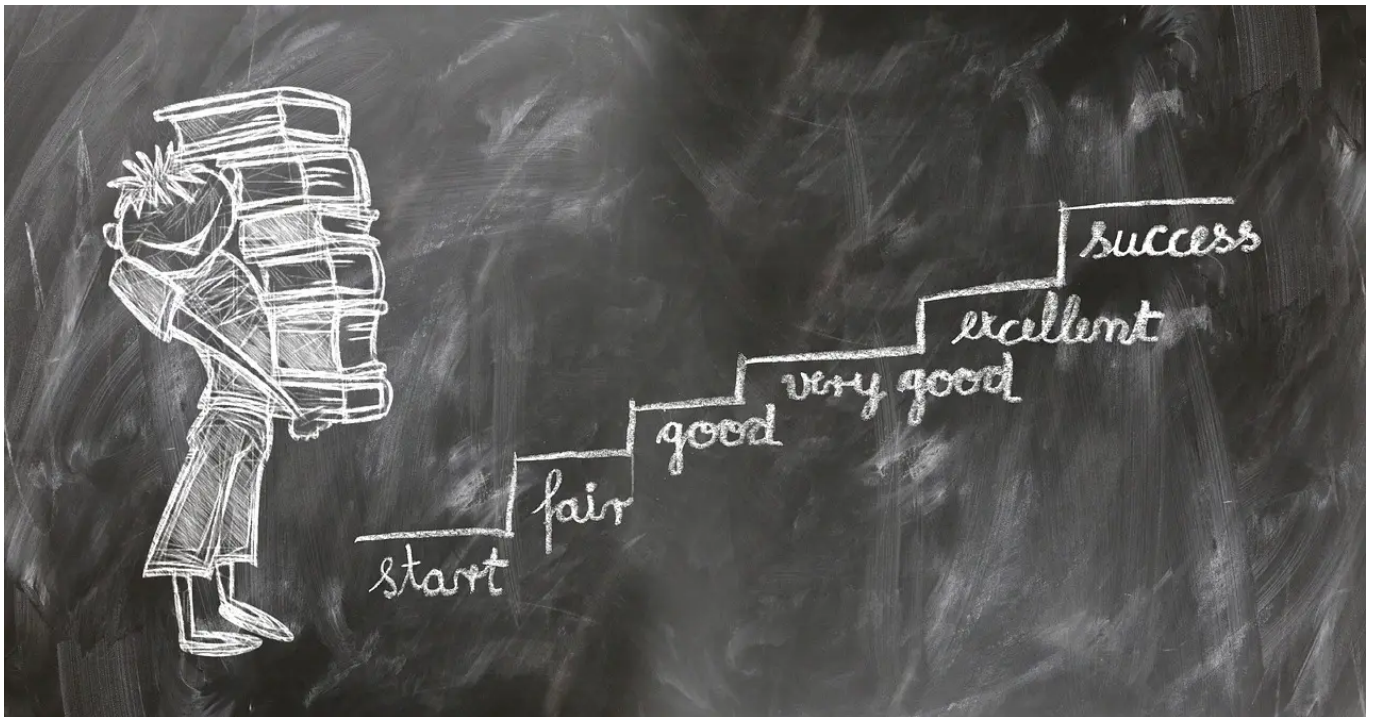 start
fair
good
very good
excellent
success